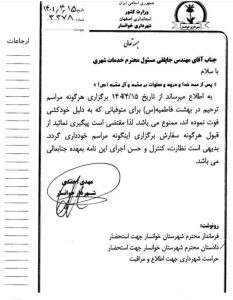 جمهوری اسلامی ایران
وزارت کشور
استانداری اصفهان
شهرداری خوانسار
بسمه تعالی
ارجاعات
جناب آقای مهندس جاپلقی مسئول محترم خدمات شهری
با سلام
« پس از حمد خدا و درود و صلوات بر محمد و آل محمد (ص) »
به اطلاع میرساند از تاریخ ۱۴۰۱/۴/۱۵ برگزاری هرگونه مراسم
ترحیم در بهشت فاطمیه(س) برای متوفیانی که به دلیل خودکشی
فوت نموده اند، ممنوع می باشد. لذا مقتضی است پیگیری نمائید از
قبول هرگونه سفارش برگزاری اینگونه مراسم خودداری گردد.
بدیهی است نظارت، کنترل و حسن اجرای این نامه بعهده جنابعالی
می باشد.
مهدی
شهردار خوانسار
رونوشت:
فرماندار محترم شهرستان خوانسار جهت استحضار
دادستان محترم شهرستان خوانسار جهت استحضار
حراست شهرداری جهت اطلاع و مراقبت